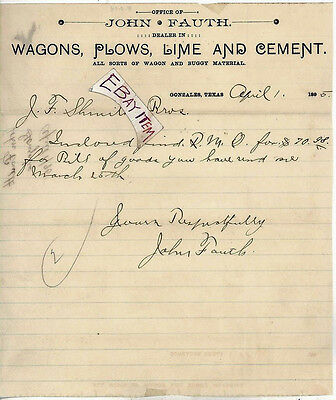 OFFICE OF
JOHN FAUTH.
DEALER IN
WAGONS, PLOWS, LIME AND CEMENT.
ALL SORTS OF WAGON AND BUGGY MATERIAL.
GONZALES, TEXAS April 1. 5
EBAY ITEM
J. F. Bros.
Inclosed find P. M. O. for $70.98
for Bill of goods you have send me
March 25th
Yours Respectfully
John Fauth